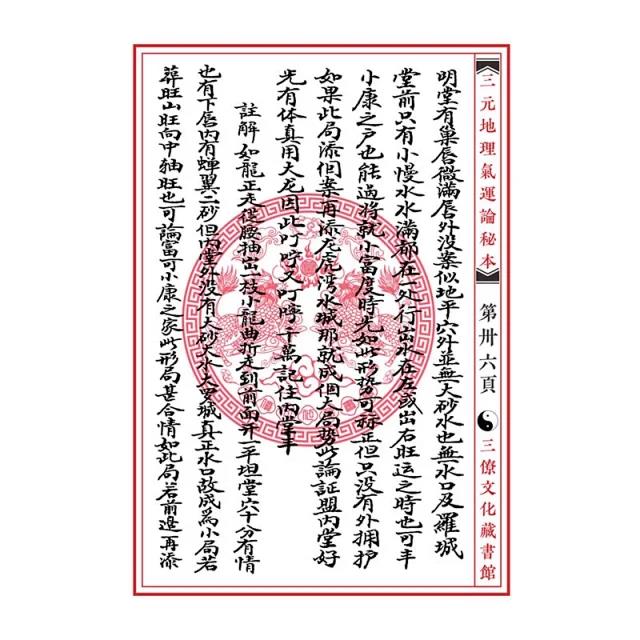 三元地理氣運論秘本
第卅六頁
三僚文化藏書館
明堂有巢唇微滿唇外没案似地平穴外並無大砂水也無水口及羅城
堂前只有小慢水水滿都在一处行出水在左或出右旺运之時也可丰
小康之户也能過将就小富度時光如此形势可称正但只没有外拥护
如果此局添但案再添龙虎湾水城那就成個大局势此論証盟内堂好
先有体真用大龙因此叮呼又叮呼千萬記住内堂丰
註解如龍正走從腰抽出一枝小龍曲折走到前面开一平坦堂穴十分有情
也有下唇内有蟬翼二砂但内堂外没有大砂大水大罗城真正水口故成為小局若
葬旺山旺向中轴旺也可論富可小康之家此形局甚合情如此局若前邊再添